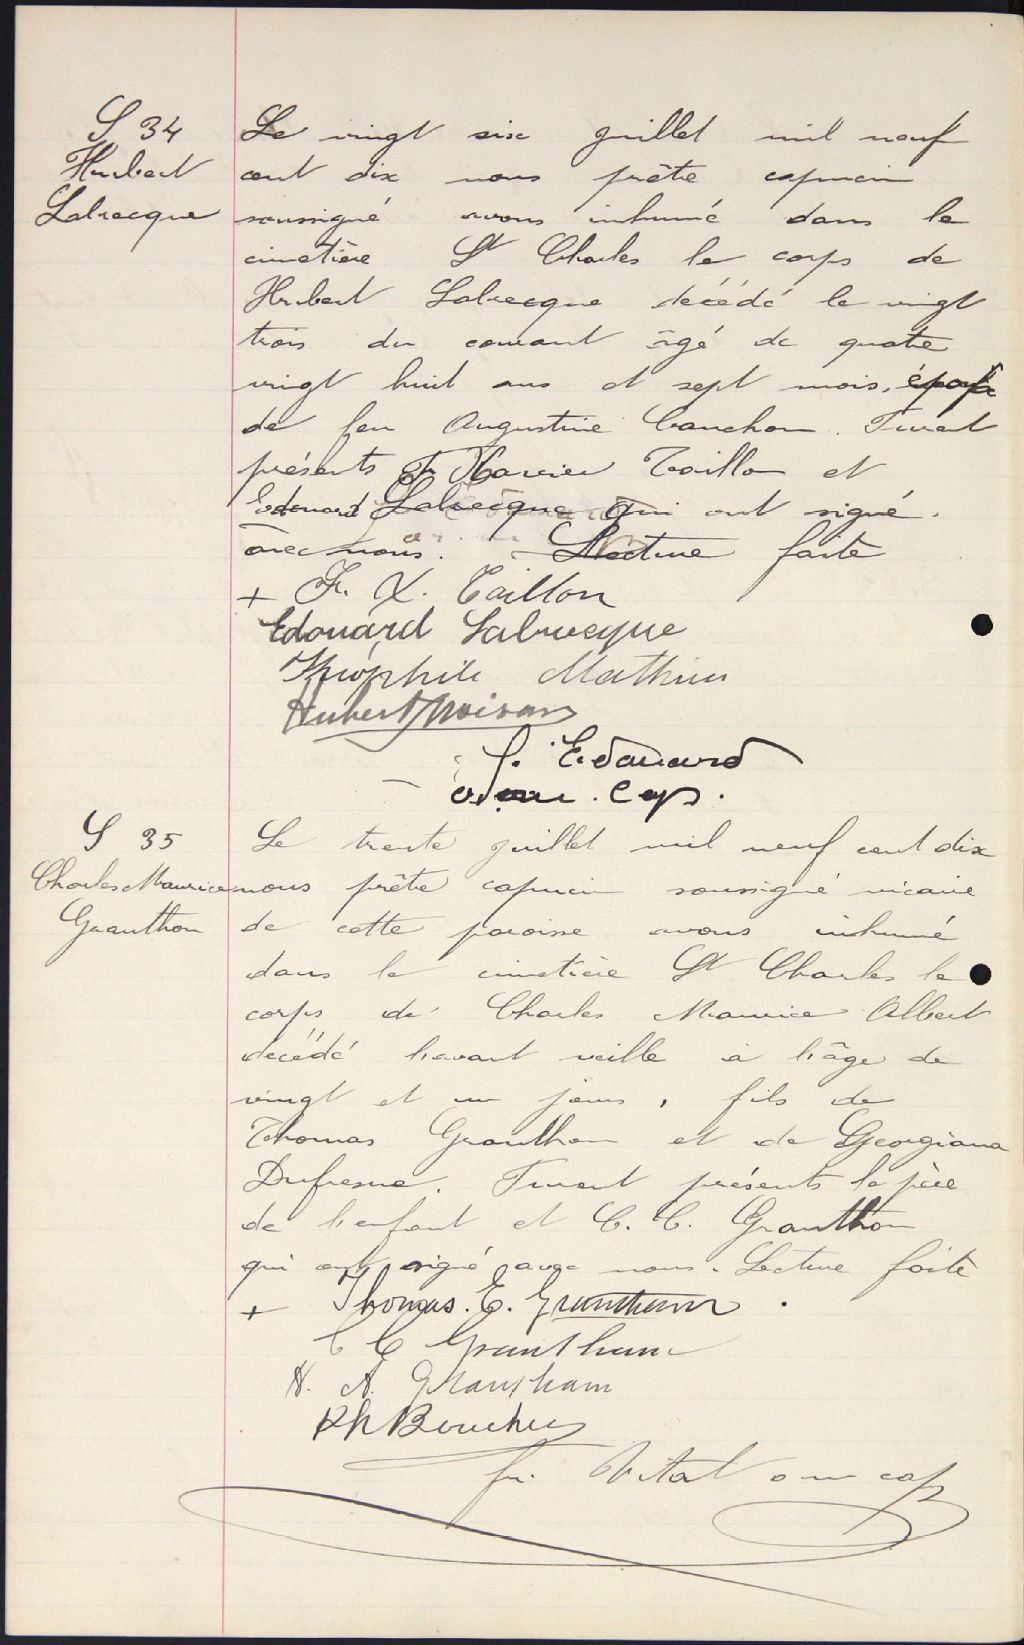 S 34
Hubert
Labrecque
Le vingt six juillet mil neuf
cent dix nous prêtre capucin
soussigné avons inhumé dans le
cimetière St Charles le corps de
Hubert Labrecque décédé le vingt
trois du courant âgé de quatre
vingt huit ans et sept mois, époux
de feu Augustine Cauchon. Furent
présents Fr Xavier Taillon et
Edouard Labrecque qui ont signé
avec nous. Lecture faite
+ Fr. X. Taillon
Edouard Labrecque
Théophile Mathieu
Hubert Moisan
f. Edouard
o.m. cap.
S 35
Charles Maurice
Granthon
Le trente juillet mil neuf cent dix
nous prêtre capucin soussigné vicaire
de cette paroisse avons inhumé
dans le cimetière St Charles le
corps de Charles Maurice Albert
décédé l'avant veille à l'âge de
vingt et un jours, fils de
Thomas Granthon et de Georgiana
Dufresne. Furent présents le père
de l'enfant et C. C. Granthon
qui ont signé avec nous. Lecture faite
+ Thomas. E. Grantham.
C C Grantham
H. A. Grantham
Ph Boucher
fr. Vital o m cap